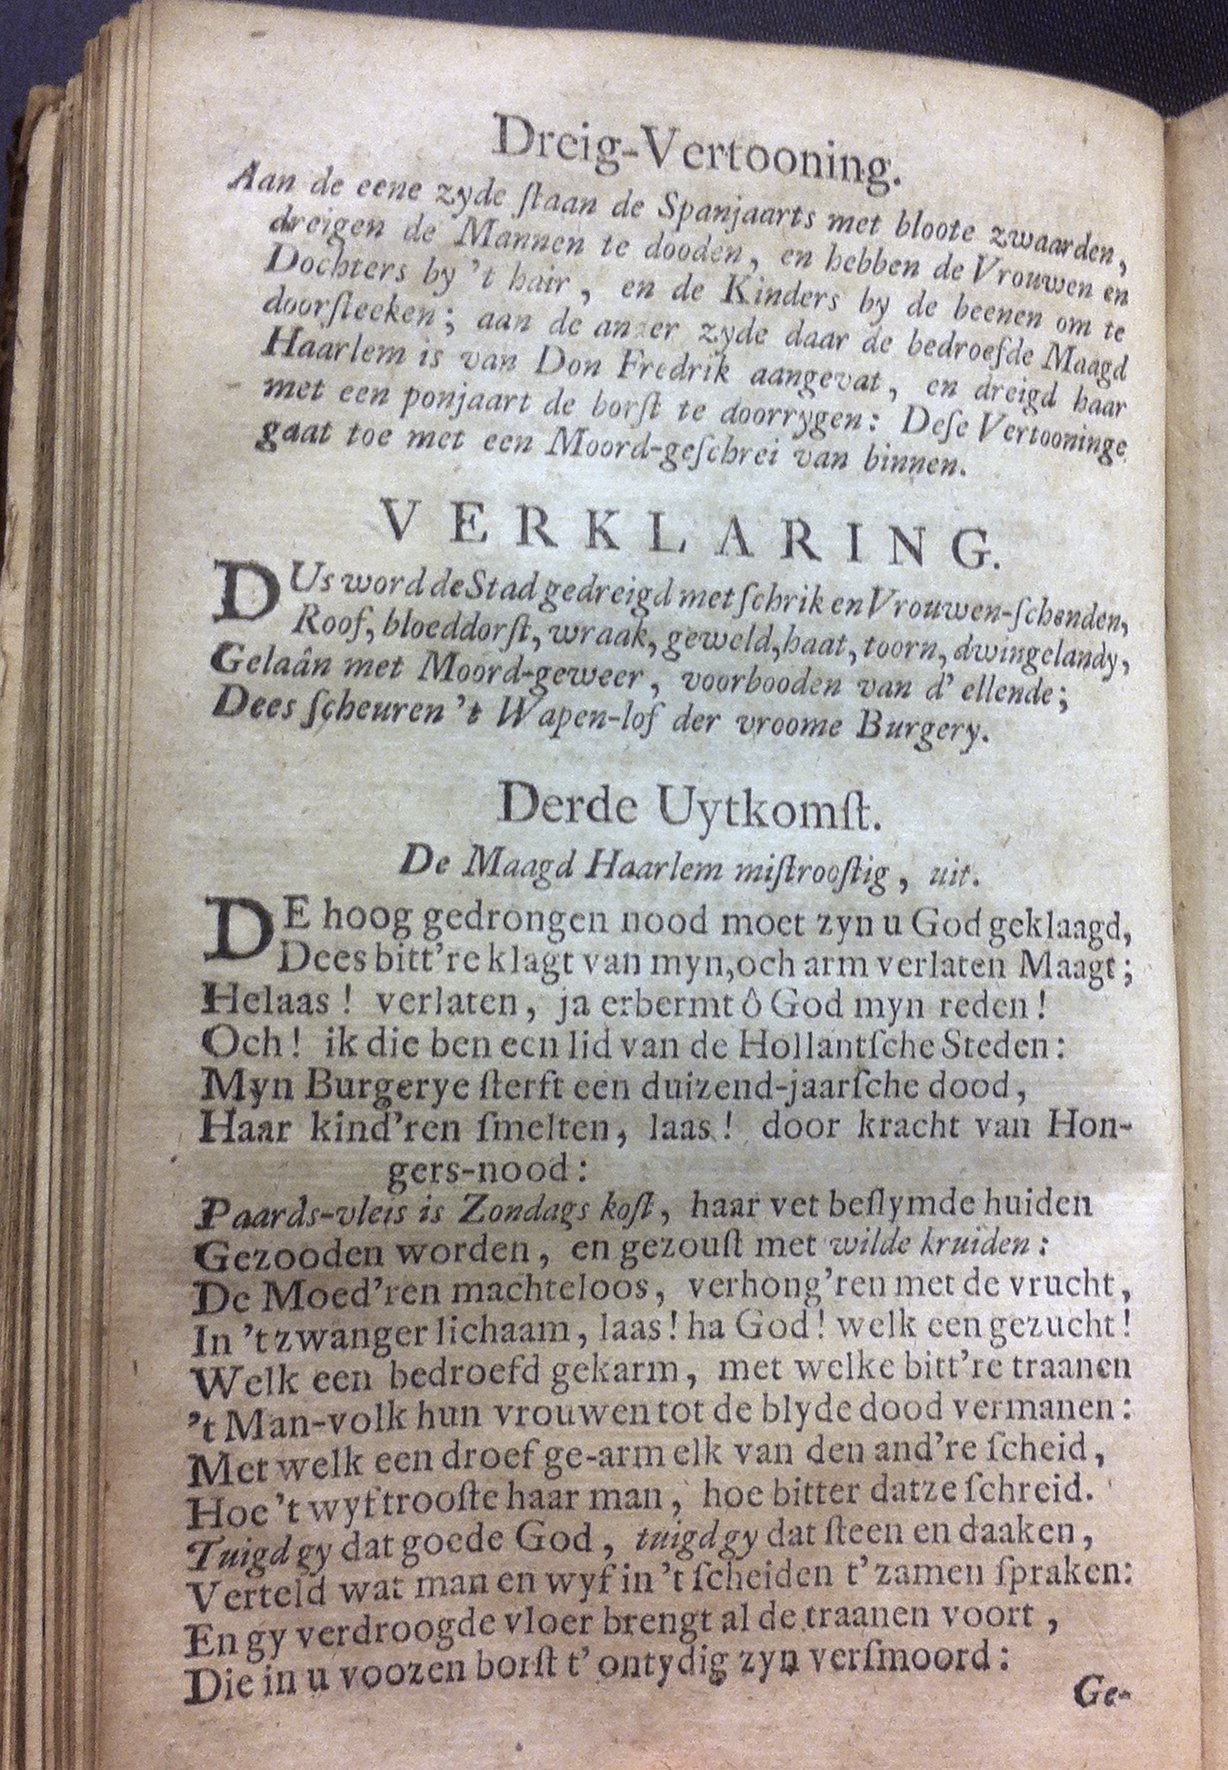 Dreig-Vertooning.
Aan de eene zyde ſtaan de Spanjaarts met bloote zwaarden,
dreigen de Mannen te dooden, en hebben de Vrouwen en
Dochters by 't hair, en de Kinders by de beenen om te
doorſteeken; aan de ander zyde daar de bedroefde Maagd
Haarlem is van Don Fredrik aangevat, en dreigd haar
met een ponjaart de borſt te doorrygen: Deſe Vertooninge
gaat toe met een Moord-geſchrei van binnen.
VERKLARING.
DUs word de Stad gedreigd met ſchrik en Vrouwen-ſchenden,
Roof, bloeddorſt, wraak, geweld, haat, toorn, dwingelandy,
Gelaân met Moord-geweer, voorbooden van d' ellende;
Dees ſcheuren 't Wapen-loſ der vroome Burgery.
Derde Uytkomſt.
De Maagd Haarlem miſtrooſtig, uit.
DE hoog gedrongen nood moet zyn u God geklaagd,
Dees bitt're klagt van myn, och arm verlaten Maagt;
Helaas! verlaten, ja erbermt ô God myn reden!
Och! ik die ben een lid van de Hollantſche Steden:
Myn Burgerye ſterft een duizend-jaarſche dood,
Haar kind'ren ſmelten, laas! door kracht van Hon-
gers-nood:
Paards-vleis is Zondags koſt, haar vet beſlymde huiden
Gezooden worden, en gezouſt met wilde kruiden:
De Moed'ren machteloos, verhong'ren met de vrucht,
In 't zwanger lichaam, laas! ha God! welk een gezucht!
Welk een bedroefd gekarm, met welke bitt're traanen
't Man-volk hun vrouwen tot de blyde dood vermanen:
Met welk een droef ge-arm elk van den and're ſcheid,
Hoe 't wyf trooſte haar man, hoe bitter datze ſchreid.
Tuigd gy dat goede God, tuigd gy dat ſteen en daaken,
Verteld wat man en wyf in 't ſcheiden t' zamen ſpraken:
En gy verdroogde vloer brengt al de traanen voort,
Die in u voozen borſt t' ontydig zyn verſmoord:
Ge-